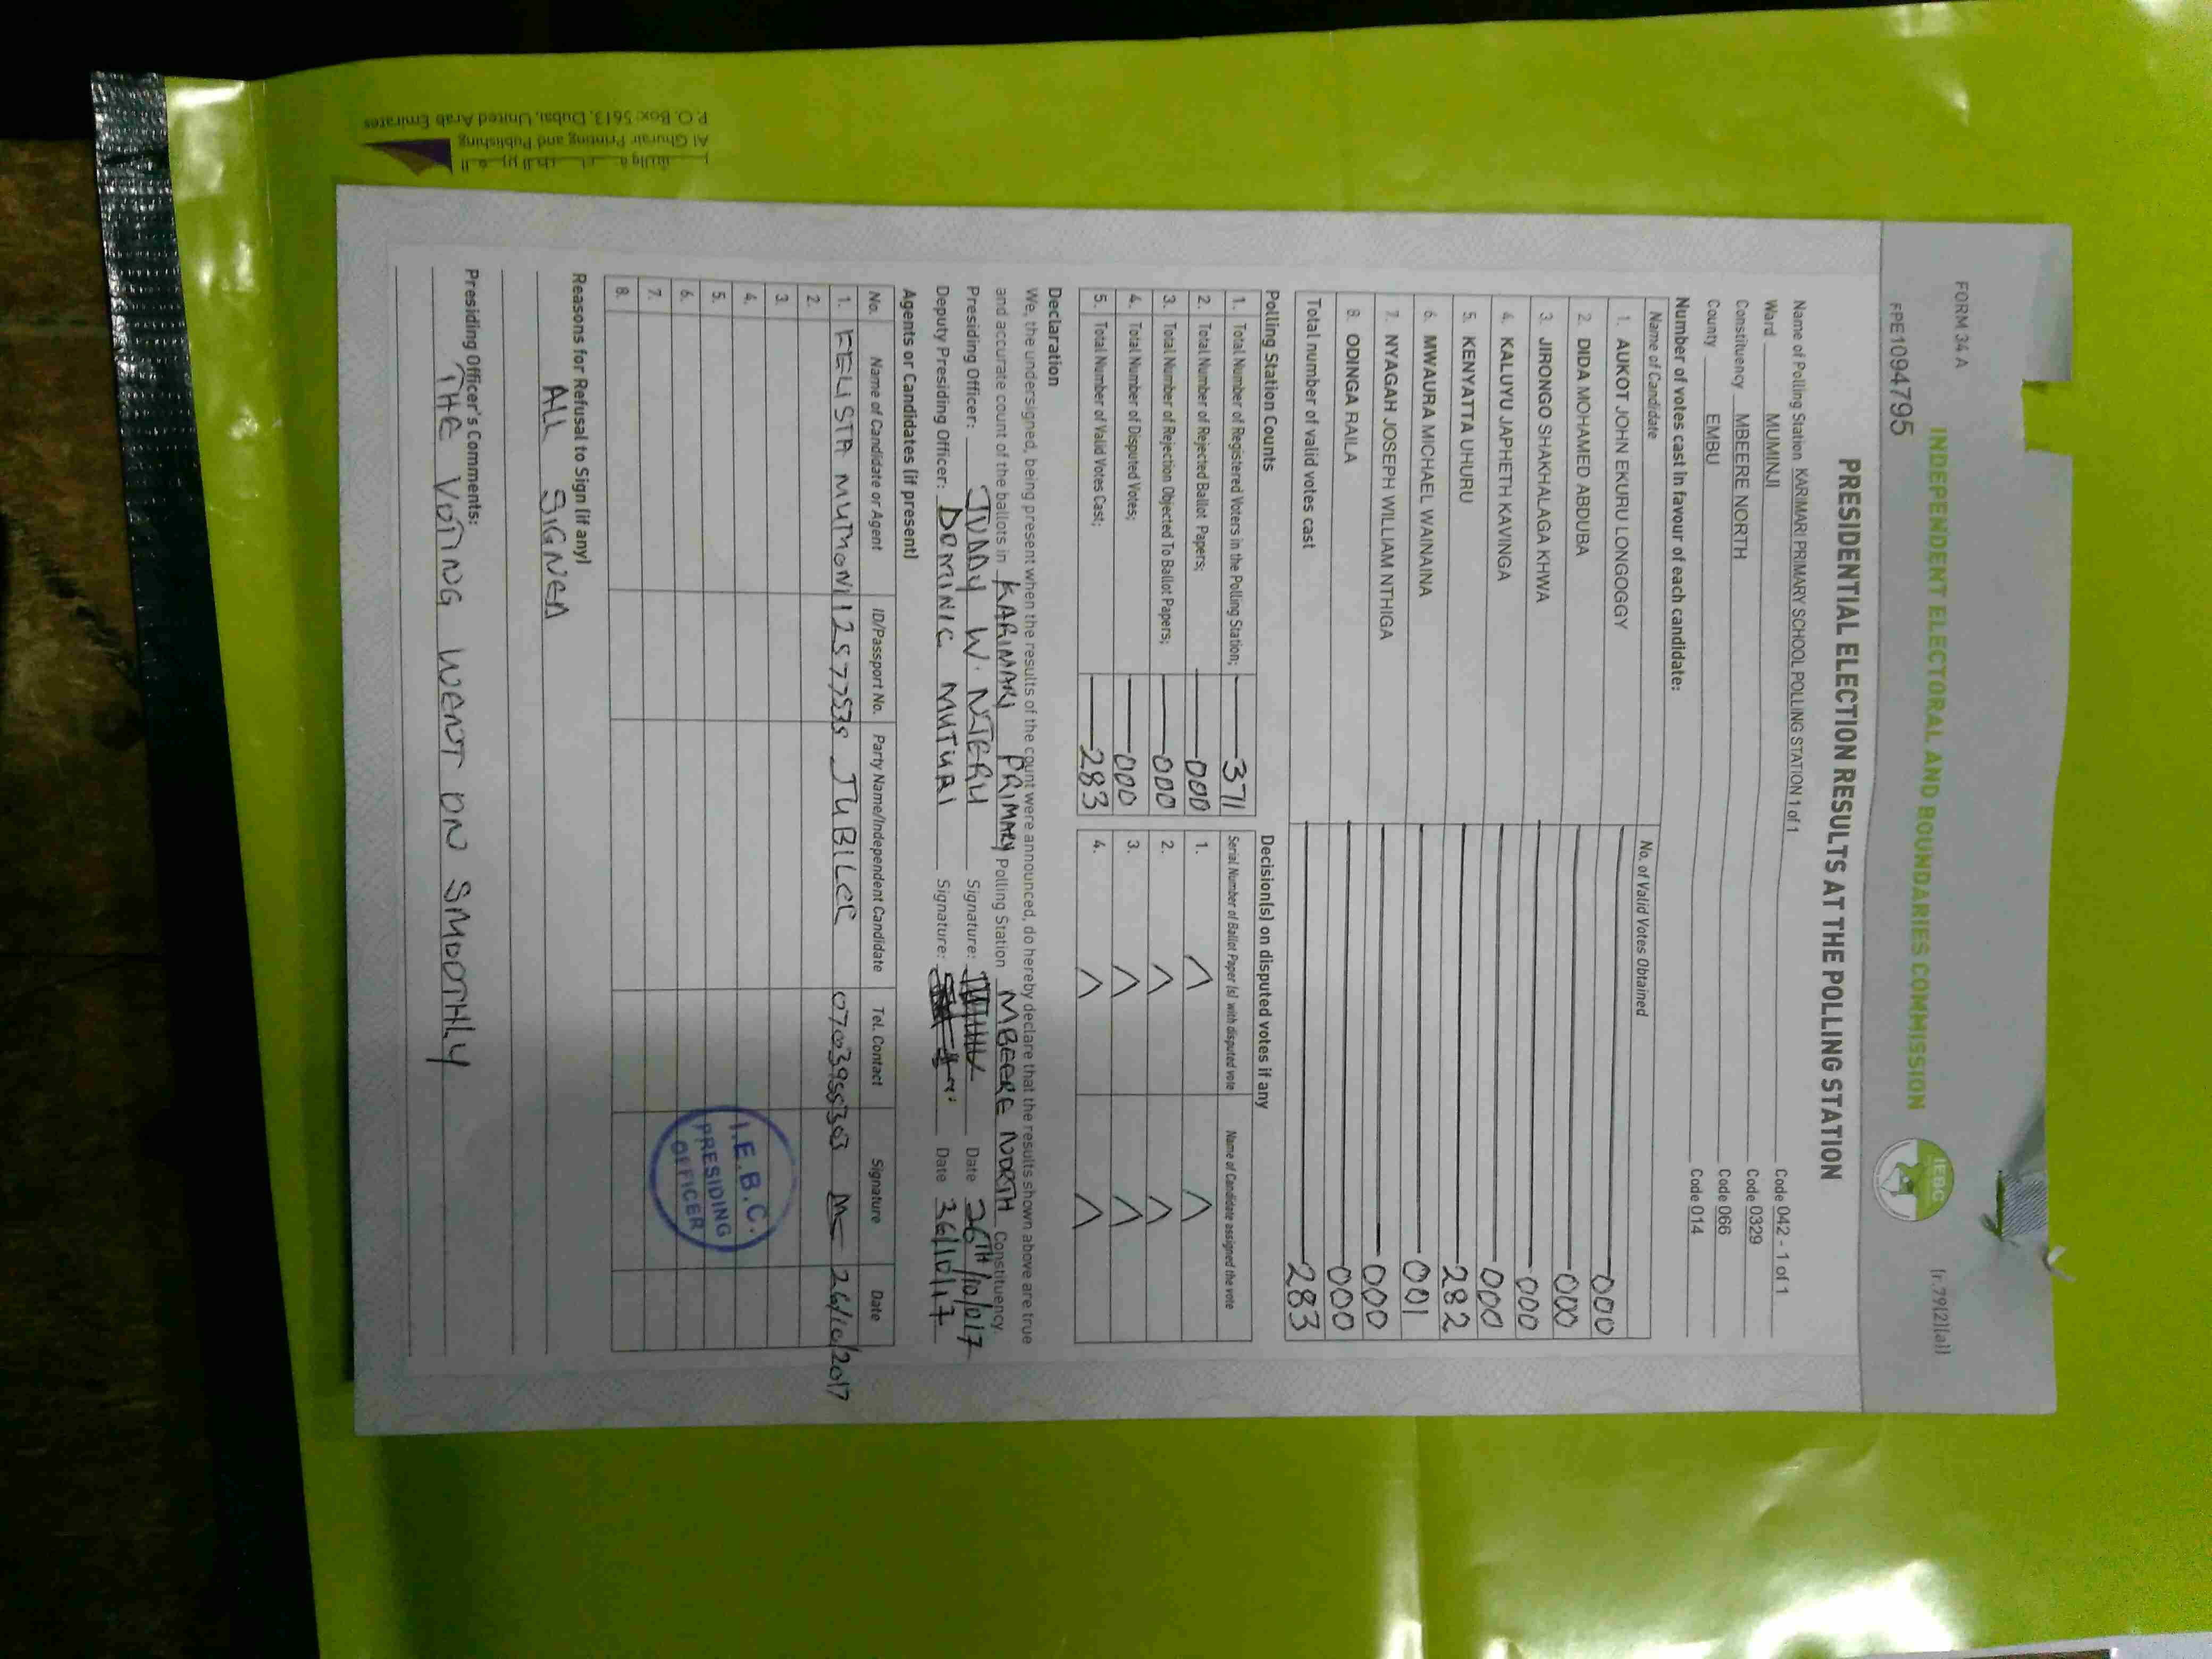 FORM 34 A
(r.79(2)(a))
INDEPENDENT ELECTORAL AND BOUNDARIES COMMISSION
IEBC
PPE1094795
PRESIDENTIAL ELECTION RESULTS AT THE POLLING STATION
Name of Polling Station KARIMARI PRIMARY SCHOOL POLLING STATION 1 of 1 Code 042 - 1 of 1
Ward MUMINJI Code 0329
Constituency MBEERE NORTH Code 066
County EMBU Code 014
Number of votes cast in favour of each candidate:
Name of Candidate No. of Valid Votes Obtained
1. AUKOT JOHN EKURU LONGOGGY 000
2. DIDA MOHAMED ABDUBA 000
3. JIRONGO SHAKHALAGA KHWA 000
4. KALUYU JAPHETH KAVINGA 000
5. KENYATTA UHURU 282
6. MWAURA MICHAEL WAINAINA 001
7. NYAGAH JOSEPH WILLIAM NTHIGA 000
8. ODINGA RAILA 000
Total number of valid votes cast 283
Polling Station Counts
1. Total Number of Registered Voters in the Polling Station; 371
2. Total Number of Rejected Ballot Papers; 000
3. Total Number of Rejection Objected To Ballot Papers; 000
4. Total Number of Disputed Votes; 000
5. Total Number of Valid Votes Cast; 283
Decision(s) on disputed votes if any
Serial Number of Ballot Paper (s) with disputed vote Name of Candidate assigned the vote
1.
2.
3.
4.
Declaration
We, the undersigned, being present when the results of the count were announced, do hereby declare that the results shown above are true
and accurate count of the ballots in KARIMARI PRIMARY Polling Station MBEERE NORTH Constituency.
Presiding Officer: JUDDY W. NJERU Signature: Date 26TH/10/017
Deputy Presiding Officer: DOMINIC MUTURI Signature: Date 26/10/17
Agents or Candidates (if present)
No. Name of Candidate or Agent ID/Passport No. Party Name/Independent Candidate Tel. Contact Signature Date
1. FELISTA MUTHONI JUBILEE 26/10/2017
2.
3.
4.
5.
6.
7.
8.
I.E.B.C.
PRESIDING
OFFICER
Reasons for Refusal to Sign (if any)
ALL SIGNED
Presiding Officer's Comments:
THE VOTING WENT ON SMOOTHLY
Al Ghurair Printing and Publishing
P.O. Box: 5613, Dubai, United Arab Emirates